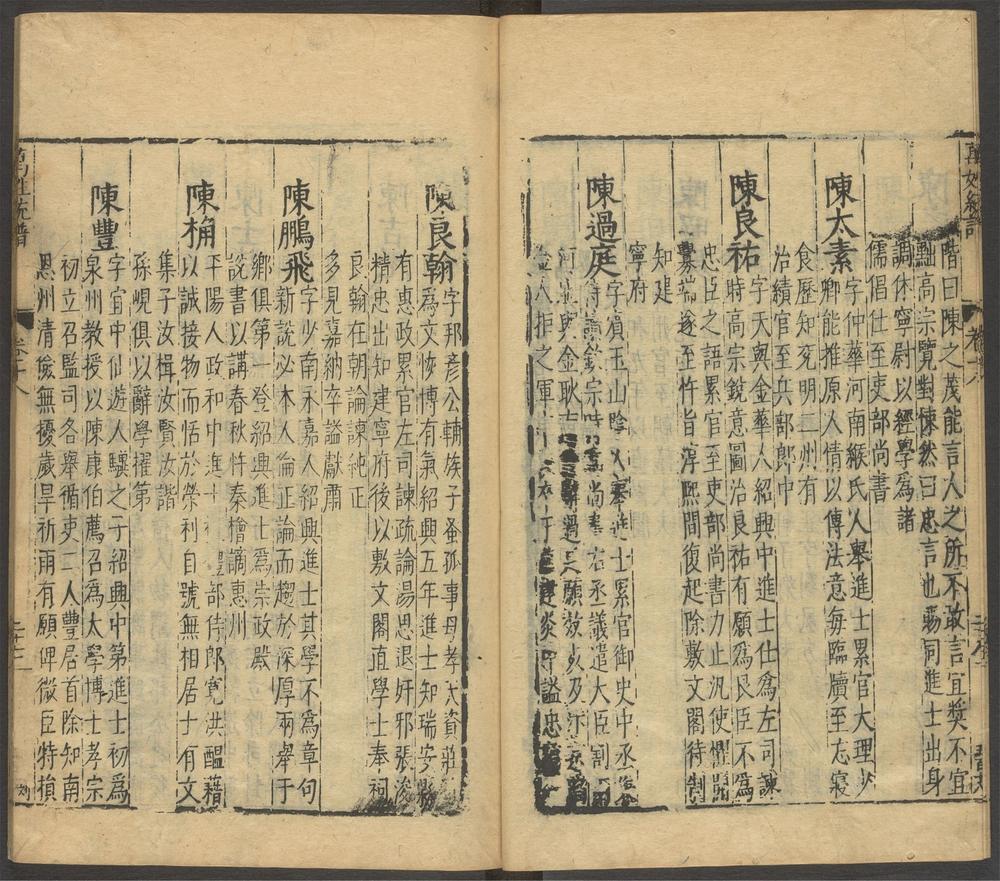 階曰陳之茂能言人之所不敢言宜奬不宜
黜高宗覽對悚然曰忠言也賜同進士出身
調休寧尉以經學爲諸
儒倡仕至吏部尚書
陳太素
字仲華河南緱氏人舉進士累官大理少
卿能推原人情以傳法意每臨牘至忘寢
食歷知兗明二州有
治績官至兵部郎中
陳良祐
字天與金華人紹興中進士仕爲左司諫
時高宗銳意圖治良祐有願爲良臣不爲
忠臣之語累官至吏部尚書力止汎使懼開
釁端遂至忤旨淳熙間復起除敷文閣待制
知建
寧府
陳過庭
字賓王山陰人舉進士累官御史中丞
侍讀欽宗時爲尚書右丞議遣大臣割
河 與金耿南 過 願效 及汴
金人拒之軍 建炎 謚忠
陳良翰
字邦彥公輔族子蚤孤事母孝大資莊
爲文恢博有氣紹興五年進士知瑞安縣
有惠政累官左司諫疏論湯思退奸邪張浚
精忠出知建寧府後以敷文閣直學士奉祠
良翰在朝論諫純正
多見嘉納卒謚獻肅
陳鵬飛
字少南永嘉人紹興進士其學不爲章句
新說必本人倫正論而趨於深厚兩舉于
鄉俱第一登紹興進士爲崇政殿
說書以講春秋忤秦檜謫惠州
陳桷
平陽人政和中進士 禮部侍郎寬洪醞藉
以誠接物而恬於榮利自號無相居士有文
集子汝楫汝賢汝諧
孫峴俱以辭學擢第
陳豐
字宜中仙遊人驤之子紹興中第進士初爲
泉州教授以陳康伯薦召爲太學博士孝宗
初立召監司各舉循吏二人豐居首除知南
恩州清儉無擾歲旱祈雨有願俾微臣特損
萬姓統譜
卷十八